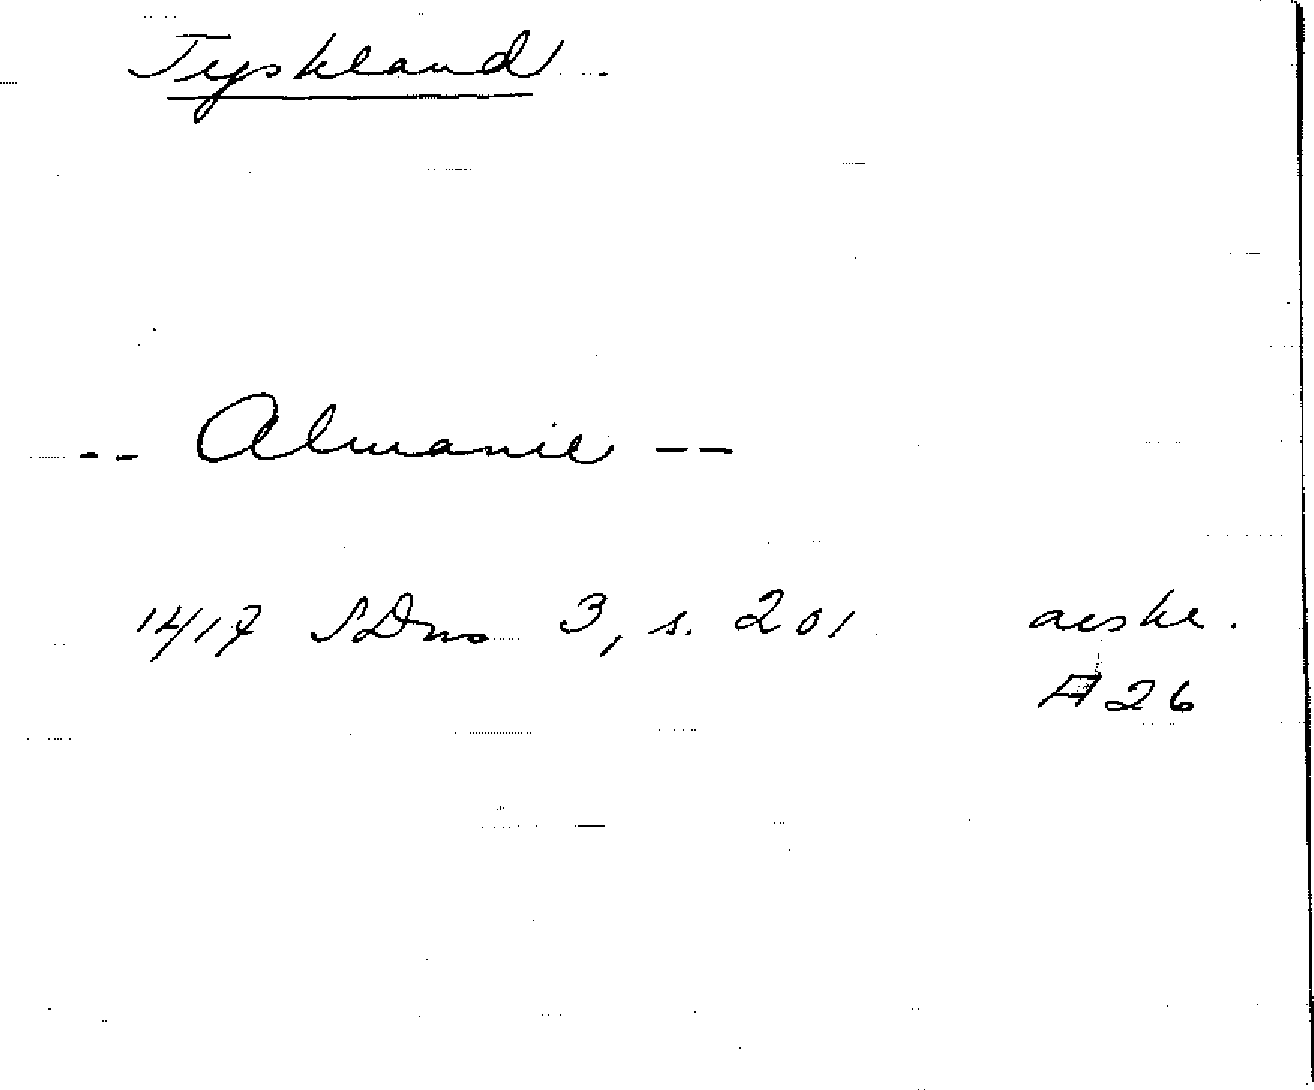 Tyskland
-- Almanie --
1417 SDns 3, s. 201 aeske.
A26